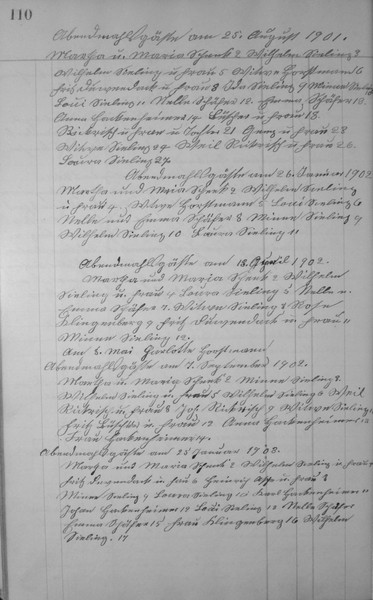 110
Abendmahlsgäste am 25. August 1901.
Martha u. Maria Schenk 2 Wilhelm Sieling 3
Wilhelm Sieling u. Frau 5 Witwe Horstmann 6
Fritz Dürrendack u. Frau 8 Ida Sieling 9 Minna Sieling 10
Loui Sieling 11 Nelle Schäfer 12. Emma Schäfer 13.
Anna Hartenheimer 14 u. Frau 18
u. Frau u. Tochter 21 Genz u. Frau 23
Witwe Sieling 24 Neil u. Frau 26.
Laura Sieling 27.
Abendmahlsgäste am 26. Januar 1902
Martha und Maria Schenk 2 Wilhelm Sieling
u. Frau 4. Witwe Horstmann 5 Loui Sieling 6
Nelle und Emma Schäfer 8 Minna Sieling 9
Wilhelm Sieling 10 Laura Sieling 11
Abendmahlsgäste am 18. April 1902.
und Maria Schenk 2 Wilhelm
Sieling u. Frau 4 Laura Sieling 5 Nelle u.
Emma Schäfer 7. Witwe Sieling 8
Klingenberg 9 Fritz Dürrendack u. Frau 11
Minna Sieling 12.
Am 8. Mai Horstmann
Abendmahlsgäste am 7. September 1902.
Martha u. Maria Schenk 2 Minna Sieling 3.
Wilhelm Sieling u. Frau 5 Wilhelm Sieling 6 Neil
u. Frau 8 Joh. 9 Witwe Sieling
Fritz u. Frau 12 Anna Hartenheimer 13
Frau Hartenheimer 14.
Abendmahlsgäste am 25 Januar 1903.
und Maria Schenk 2 Wilhelm Sieling u. Frau 4
Fritz Dürrendack u. Frau 6 Heinrich u. Frau 8
Minna Sieling 9 Laura Sieling 10 Hartenheimer 11
Hartenheimer 12 Loui Sieling 13 Nelle Schäfer
Emma Schäfer 15 Frau Klingenberg 16 Wilhelm
Sieling. 17